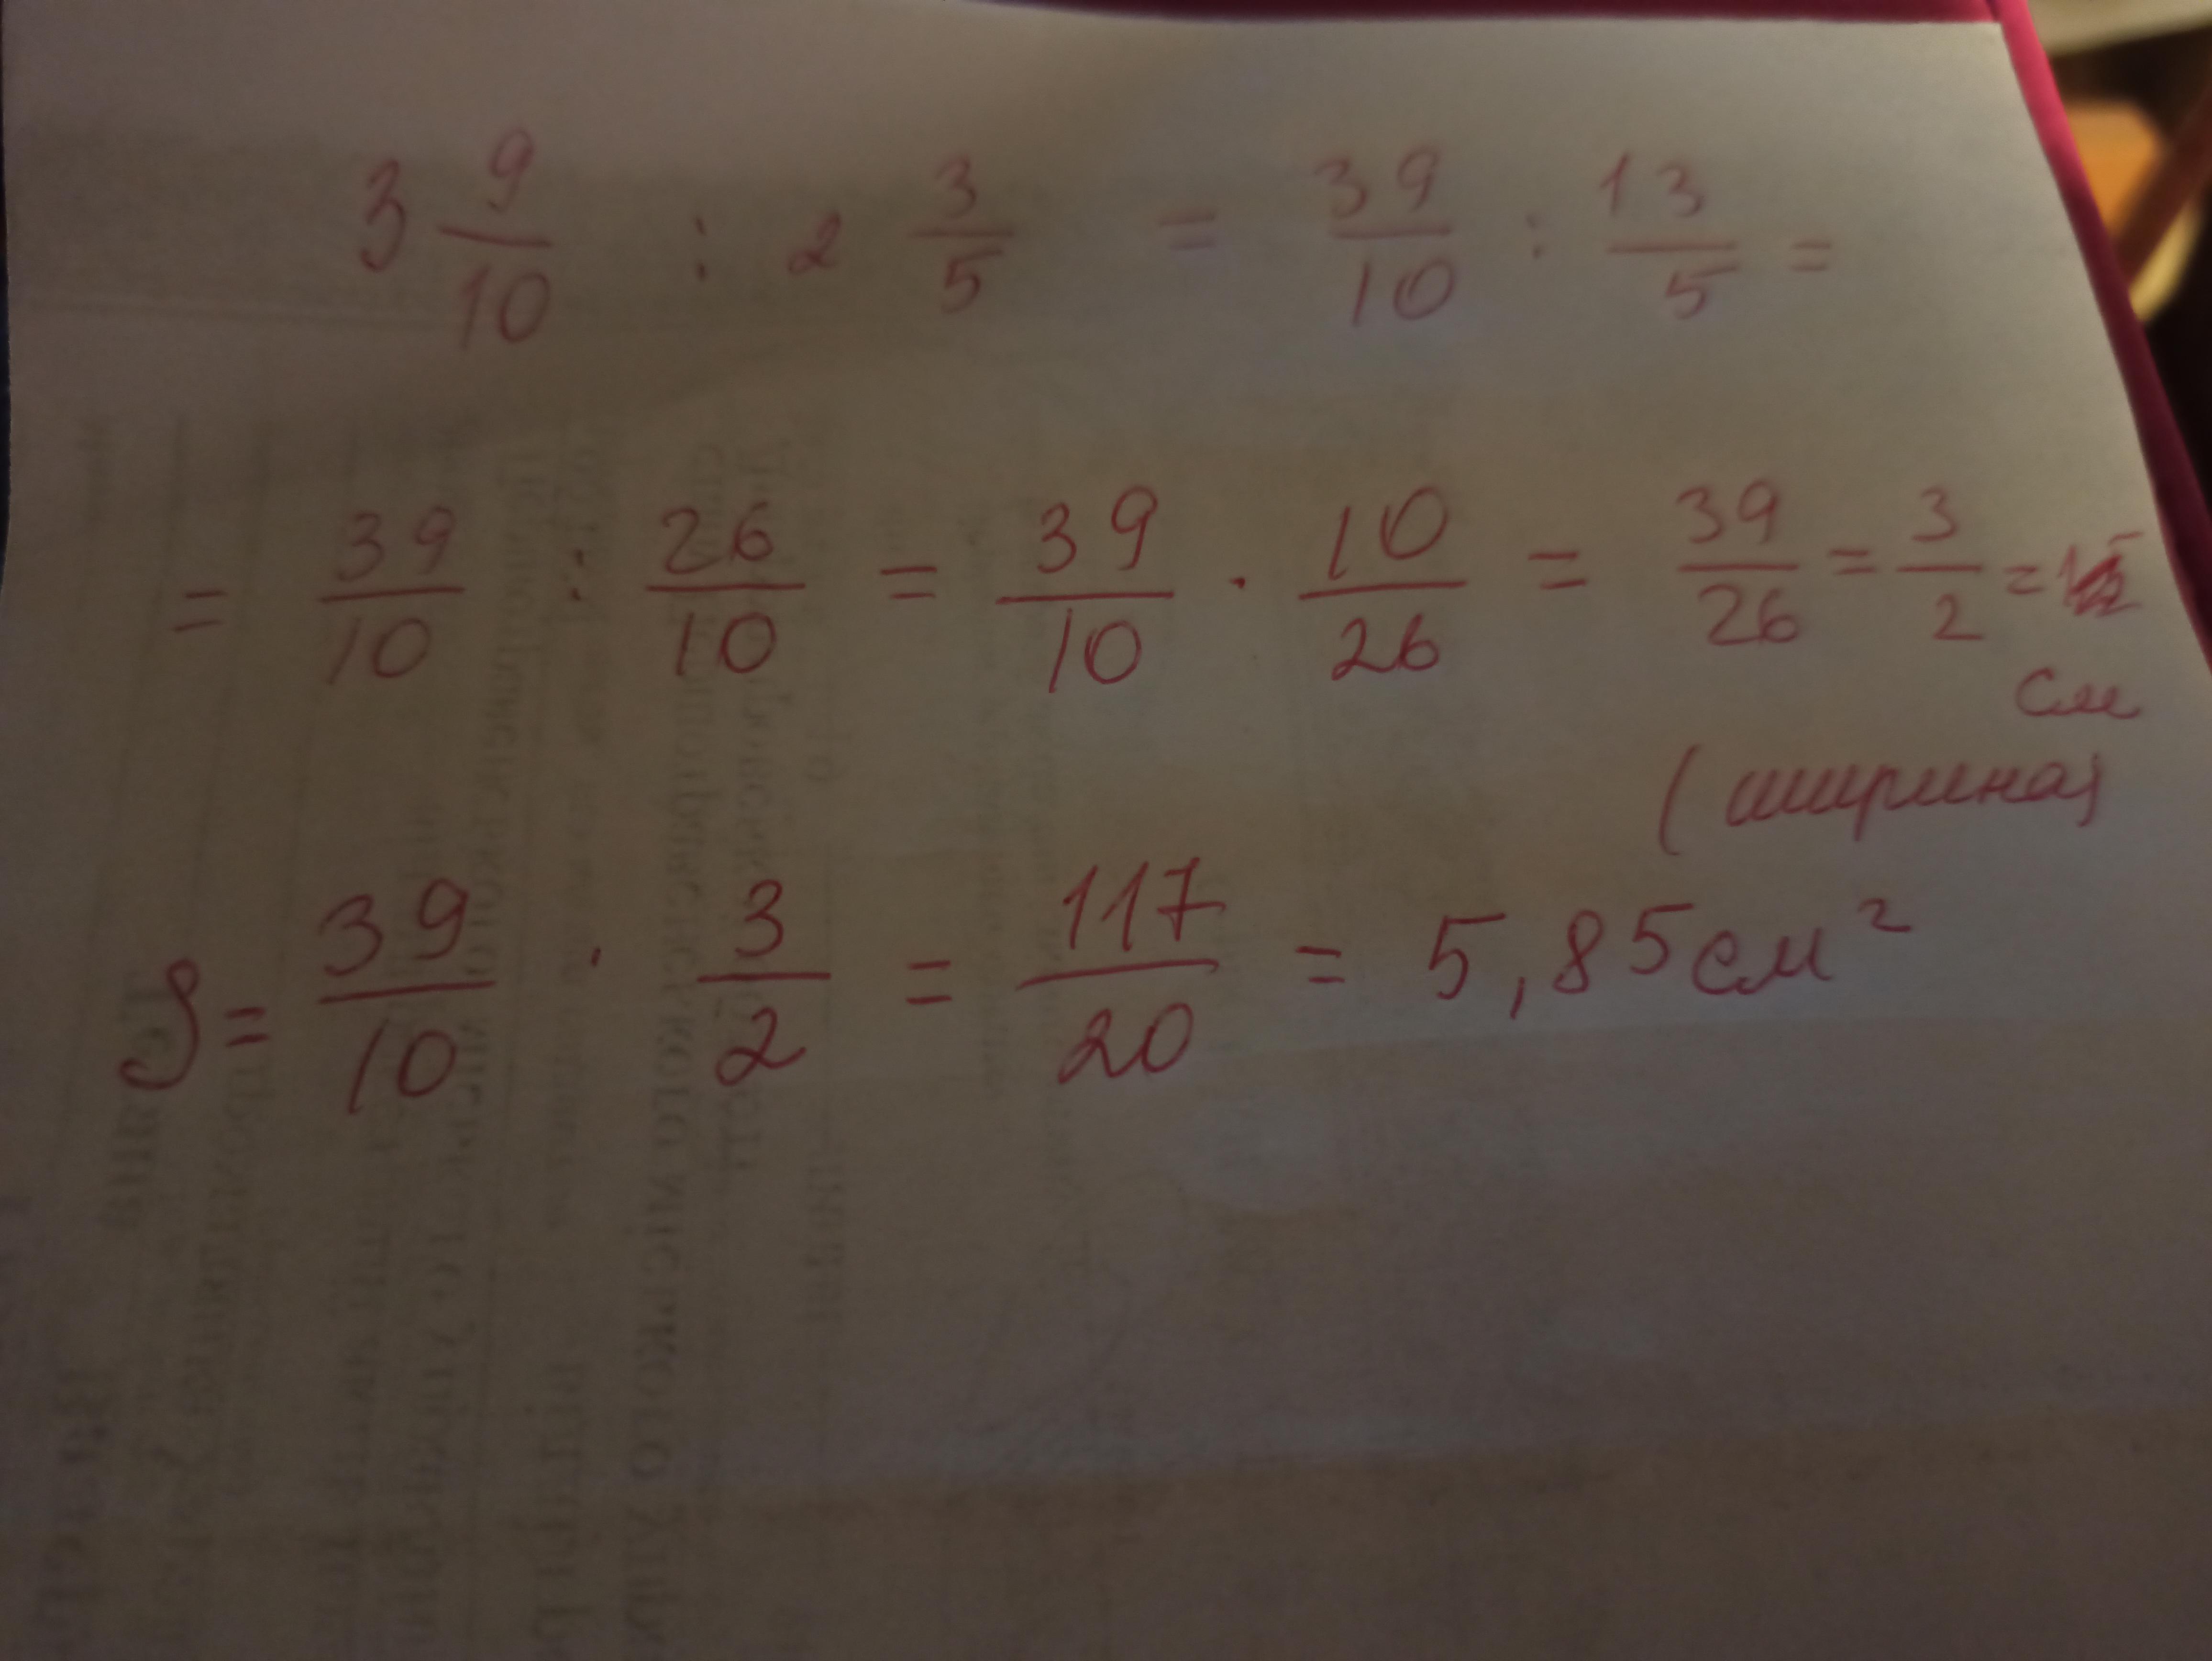 3 9/10 : 2 3/5 = 39/10 : 13/5 =
= 39/10 : 26/10 = 39/10 · 10/26 = 39/26 = 3/2 =
см
(ширина)
S = 39/10 · 3/2 = 117/20 = 5,85 см²